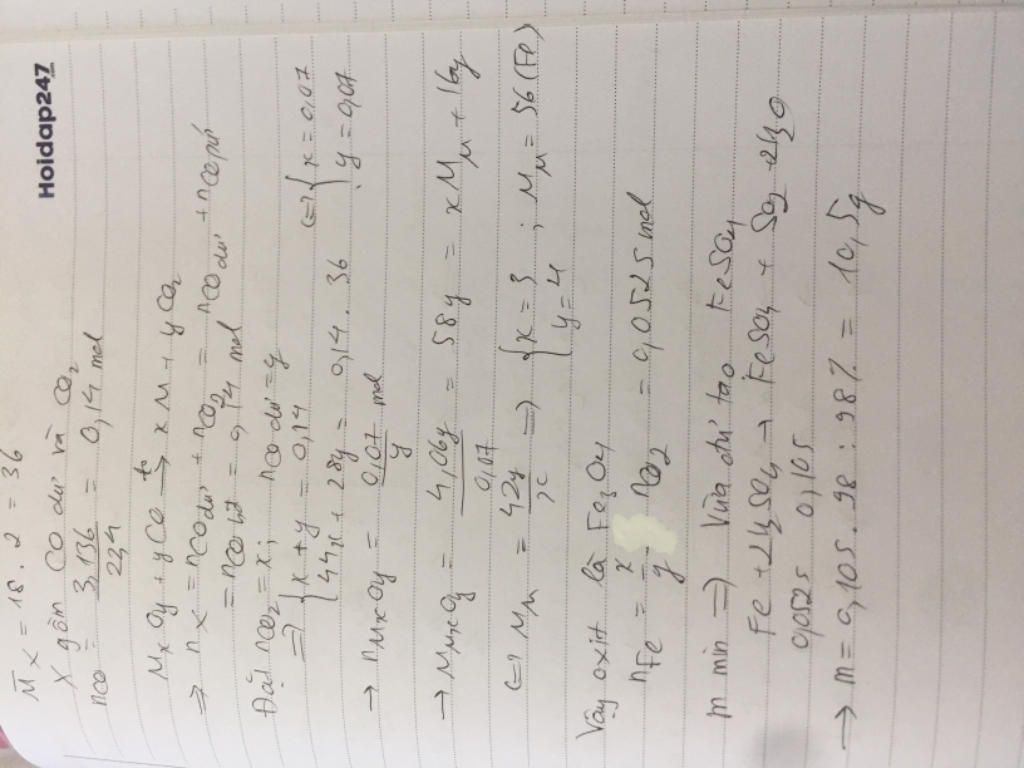 Hoidap247
M̄x = 18 . 2 = 36
X gồm CO dư và CO2
nCO = 3,136 / 22,4 = 0,14 mol
MxOy + yCO →t° xM + yCO2
⇒ nX = nCO dư + nCO2 = nCO dư + nCO pứ
= nCO bđ = 0,14 mol
Đặt nCO2 = x; nCO dư = y
⇒ { x + y = 0,14
44x + 28y = 0,14 . 36 ⇔ { x = 0,07
y = 0,07
→ nMxOy = 0,07 / y mol
→ MMxOy = 4,06y / 0,07 = 58y = xMM + 16y
⇔ MM = 42y / x ⇒ { x = 3
y = 4 ; MM = 56 (Fe)
Vậy oxit là Fe3O4
nFe = x / y nCO2 = 0,0525 mol
m min ⇒ Vừa đủ tạo FeSO4
Fe + 2H2SO4 → FeSO4 + SO2 + 2H2O
0,0525 0,105
→ m = 0,105 . 98 : 98% = 10,5g